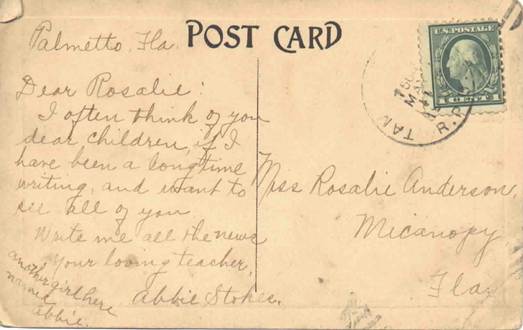 Palmetto, Fla.
POST CARD
U.S. POSTAGE
1 CENT 1
TAM
MAY
R.P.
Dear Rosalie:
I often think of you
dear children, if I
have been a long time
writing, and want to
see all of you.
Write me all the news
Your loving teacher,
Abbie Stokes.
another girl here
named
Abbie.
Miss Rosalie Anderson,
Micanopy,
Fla.